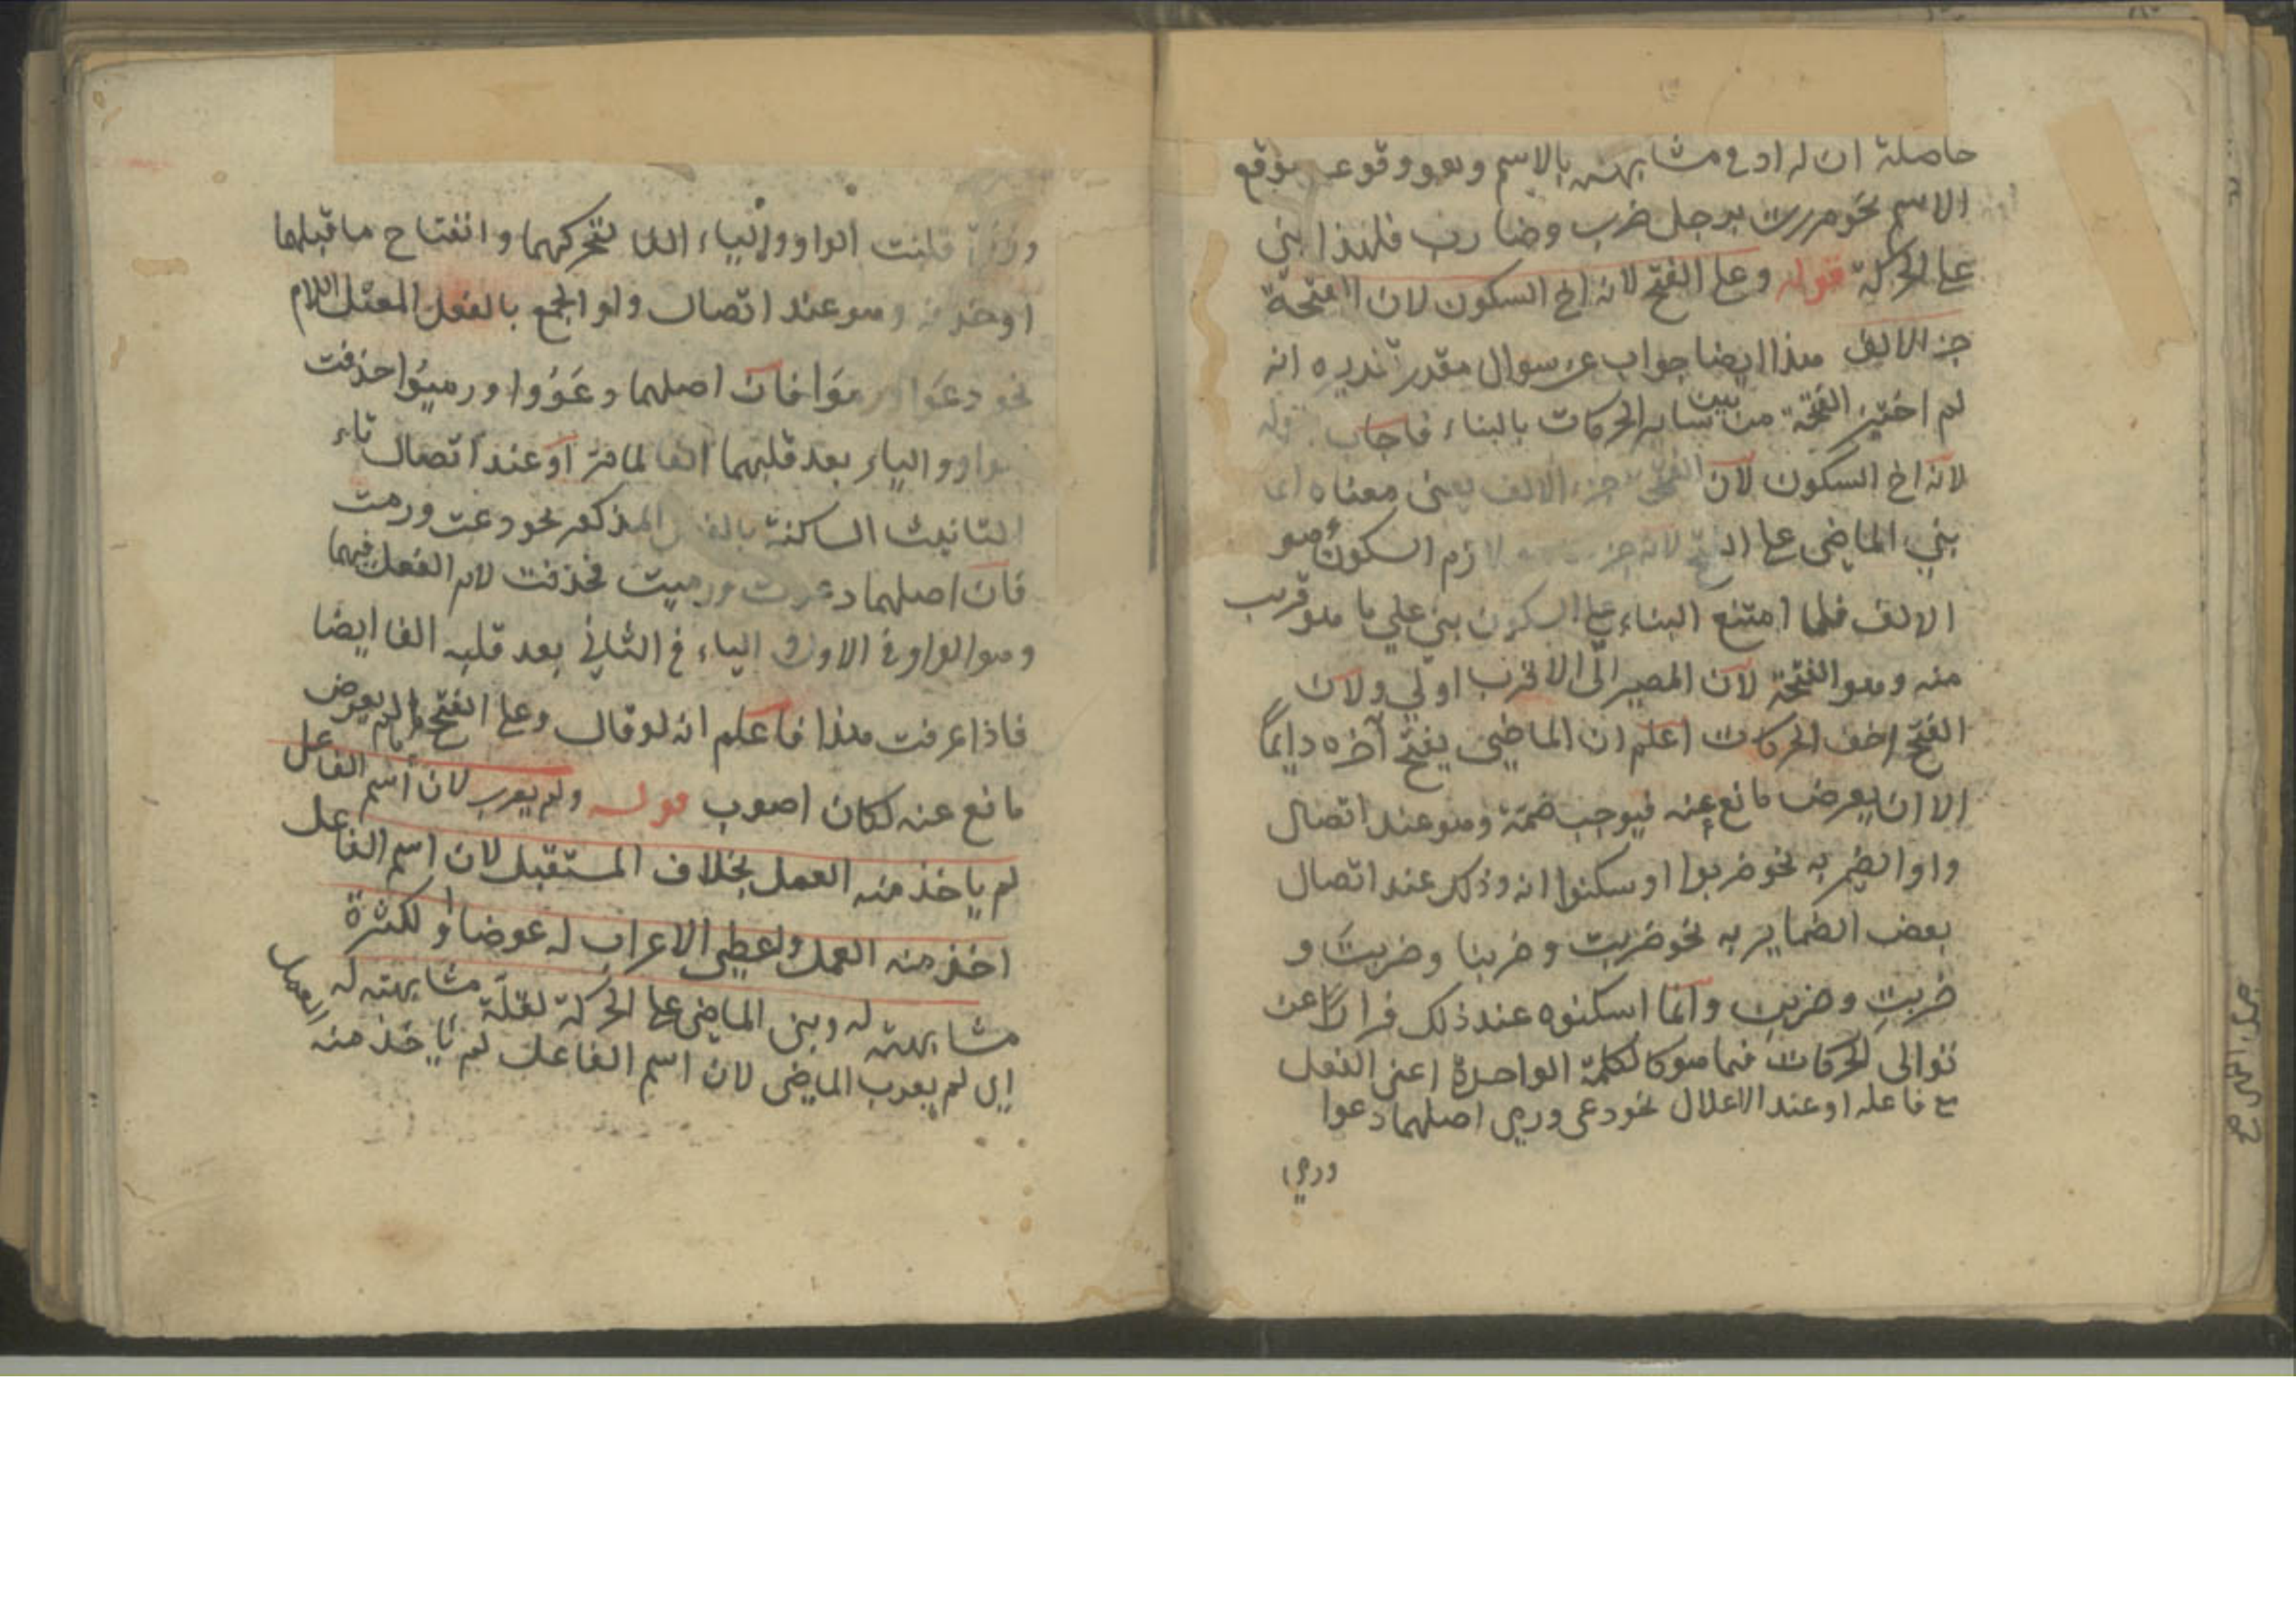 حاصلة ان له ادنى مشابهته بالاسم وهو وقوعه موقع
الاسم نحو مررت برجل ضرب وضارب فلهذا بني
على الحركة قوله وعلى الفتح لانه اخ السكون لان الفتحة
جزء الالف هذا ايضا جواب عن سوال مقدر تقديره انه
لم اختير الفتحة من بين ساير الحركات بالبناء فاجاب قوله
لانه اخ السكون لان الفتحة جزء الالف يعني معناه انما
بني الماضي على الفتح لانه جزء لازم السكون وهو
الالف فلما امتنع البناء على السكون بني على ما هو قريب
منه وهو الفتحة لان المصير الى الاقرب اولى ولان
الفتح اخف الحركات اعلم ان الماضي يفتح آخره دايماً
الا ان يعرض مانع عنه فيوجب ضمة وهو عند اتصال
واو الضمير به نحو ضربوا او سكنوا انه وذلك عند اتصال
بعض الضماير به نحو ضربت وضربنا وضربتَ و
ضربتِ وضربن وانما اسكنوه عند ذلك فراراً عن
توالى الحركات فيما هو كالكلمة الواحدة اعني الفعل
مع فاعله او عند الاعلال نحو دعى ورمى اصلهما دعوا
ورمي
قلبت الواو والياء الفا لتحركهما وانفتاح ما قبلهما
او حذفه وهو عند اتصال واو الجمع بالفعل المعتل اللام
نحو دعَوا ورموَا فان اصلهما دعَوُوا ورميُوا حذفت
الواو والياء بعد قلبهما الفا لما مرّ او عند اتصال تاء
التانيث الساكنة بالفعل المذكور نحو دعت ورمت
فان اصلهما دعوت ورميت فحذفت لام الفعل فيهما
وهو الواو في الاول والياء في الثاني بعد قلبه الفا ايضا
فاذا عرفت هذا فاعلم انه لو قال وعلى الفتح ما لم يعرض
مانع عنه لكان اصوب قوله ولم يعرب لان اسم الفاعل
لم ياخذ منه العمل بخلاف المستقبل لان اسم الفاعل
اخذ منه العمل واعطي الاعراب له عوضا او لكثرة
مشابهته له وبني الماضي على الحركة لقلة مشابهته له
اي لم يعرب الماضي لان اسم الفاعل لم ياخذ منه العمل